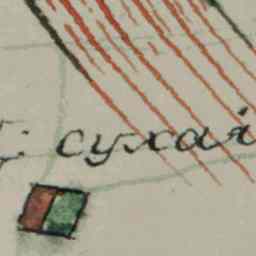 сухая